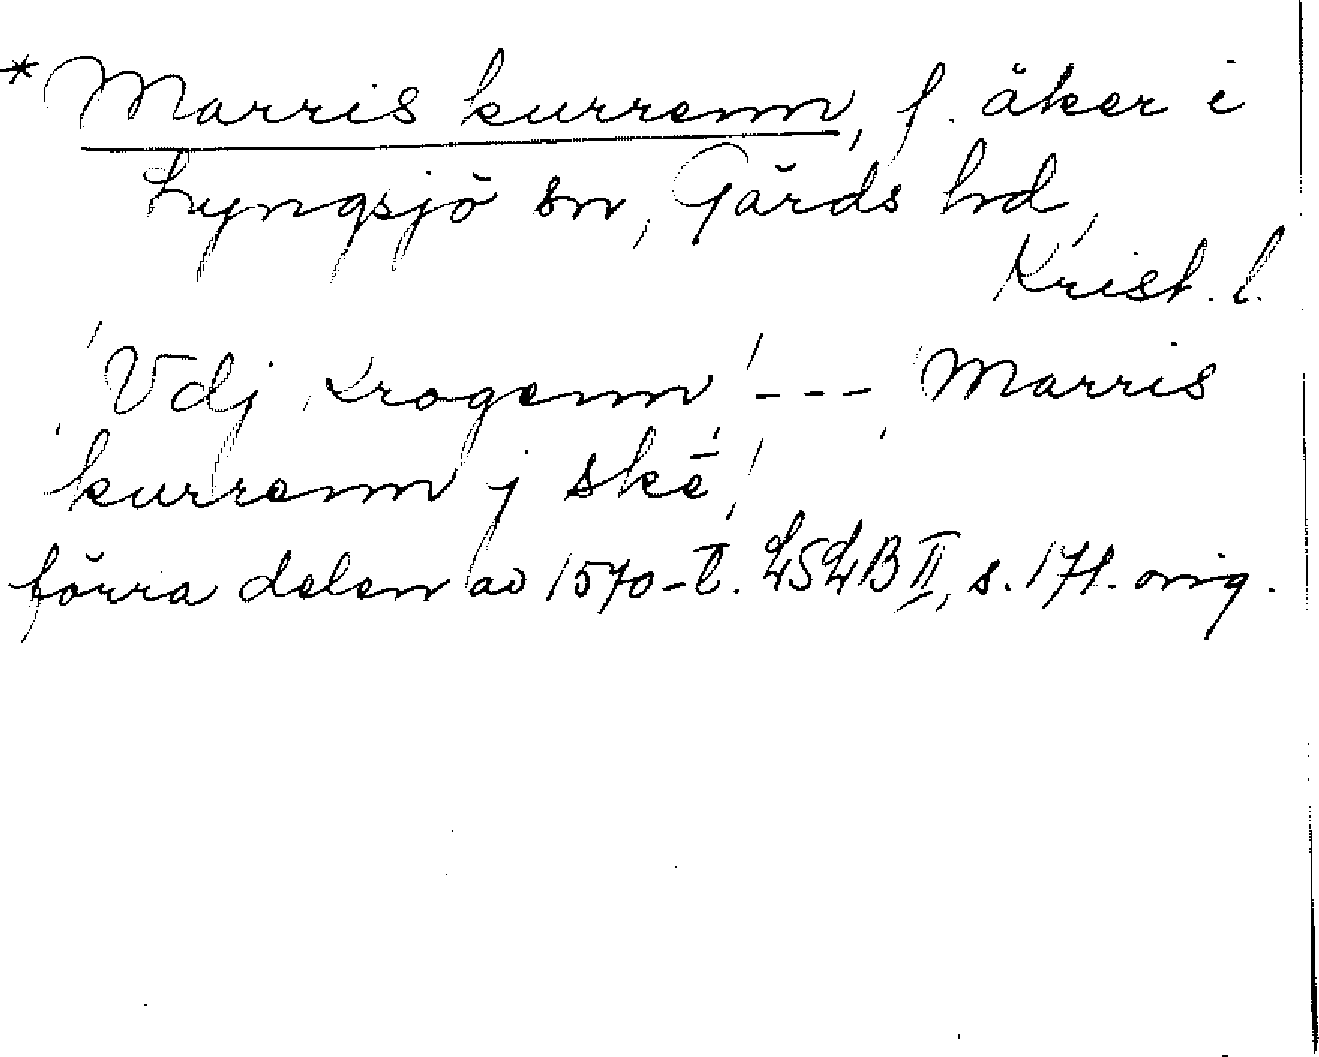 * Marris kurrenn, f. åker i
Lyngsjö sn, Gärds hd,
Krist. l.
'Vdj Krogenn' --- 'Marris
kurrenn j ske'
förra delen av 1570-t. LSLB II, s. 171. orig.